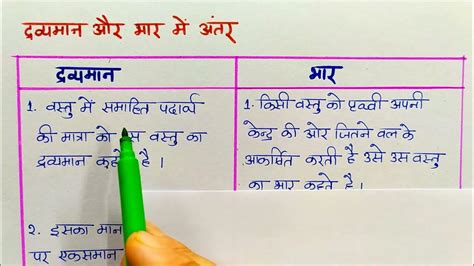 द्रव्यमान और भार में अंतर
द्रव्यमान
1. वस्तु में समाहित पदार्थ
की मात्रा को उस वस्तु का
द्रव्यमान कहते है ।
2. इसका मान
पर एकसमान
भार
1. किसी वस्तु को पृथ्वी अपनी
केन्द्र की ओर जितने बल के
आकर्षित करती है उसे उस वस्तु
का भार कहते है ।